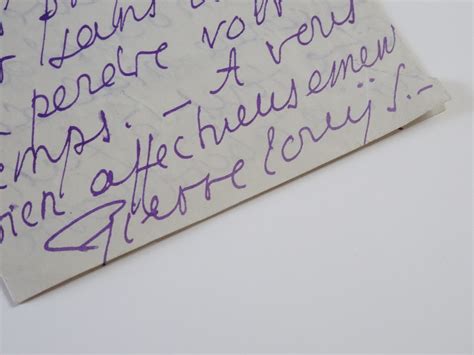 sans
perdre vo
emps. — A vous
bien affectueusemen
Pierre Louÿs. —